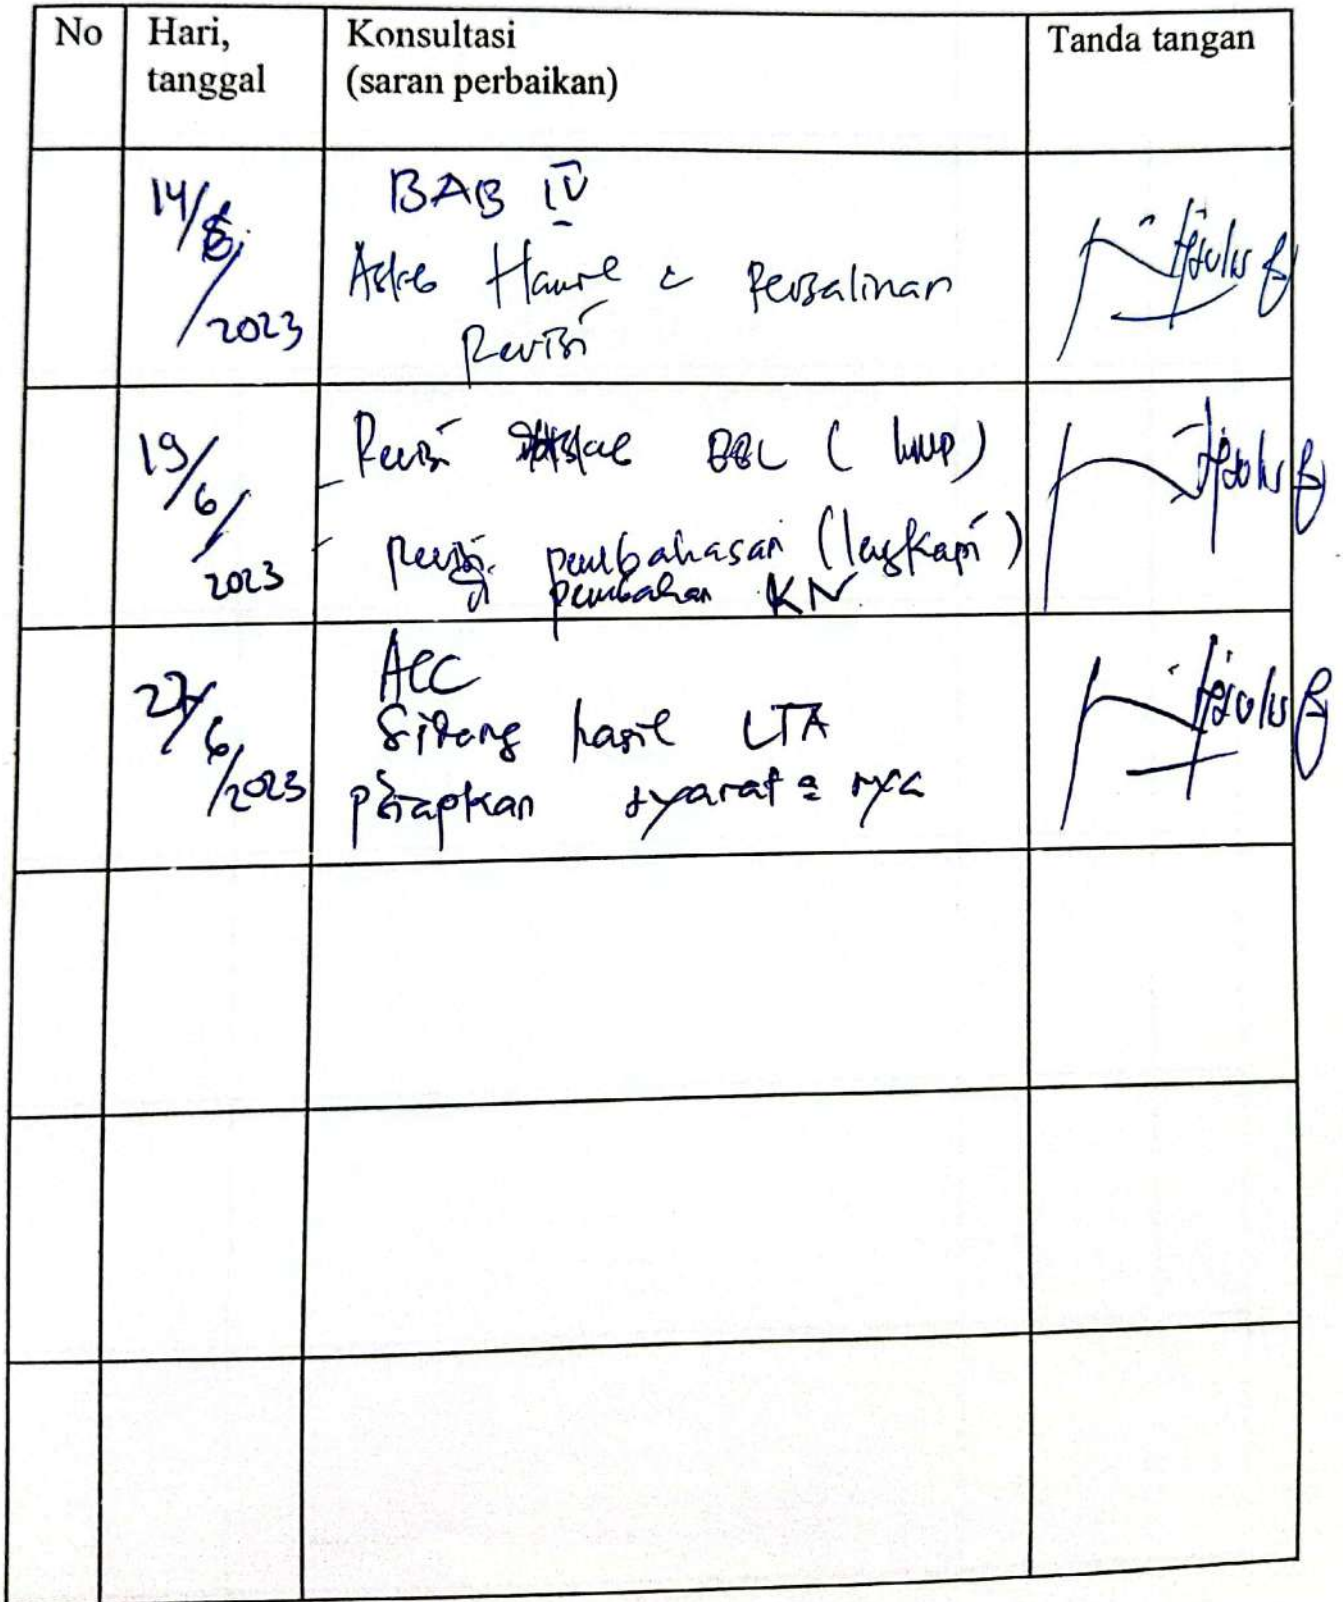 No Hari, tanggal Konsultasi (saran perbaikan) Tanda tangan
14/6/2023
BAB IV
Askeb Hamil & Persalinan
Revisi
19/6/2023
- Revisi BBL (
- Revisi pembahasan (lengkapi)
pembahasan KN
27/6/2023
ACC
Sidang hasil LTA
persiapkan syarat2 nya